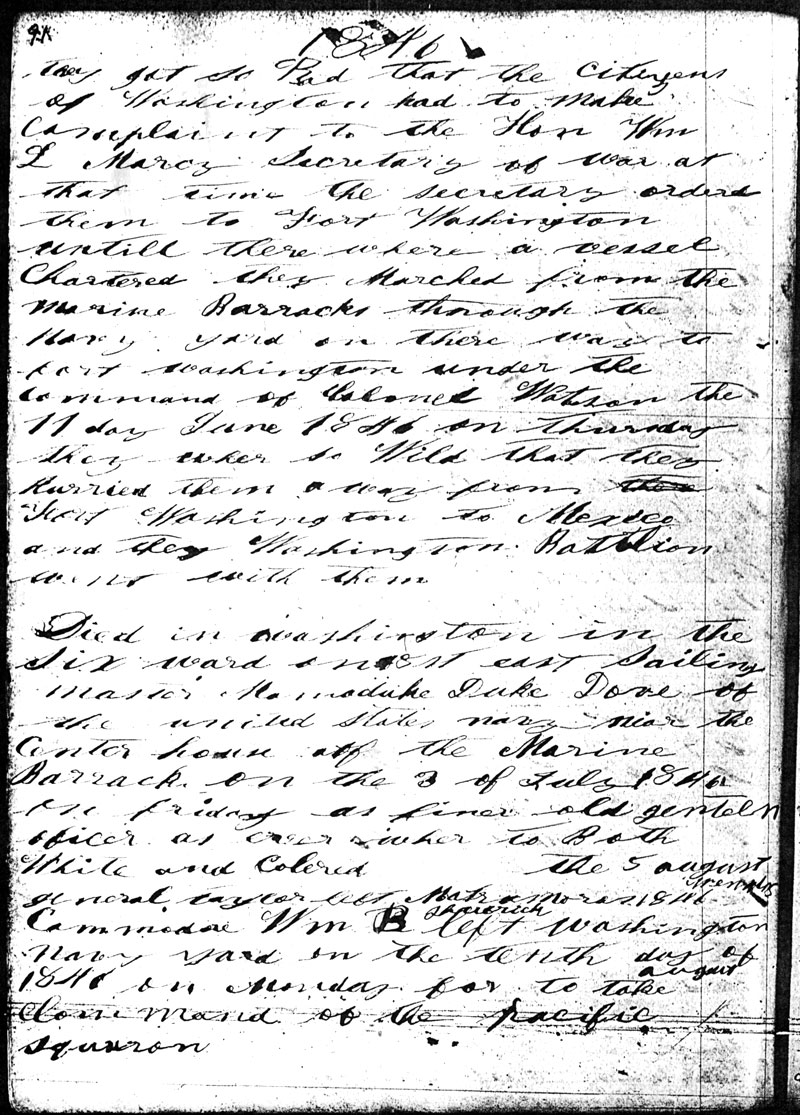 1846
they got so Bad that the Citizens
of Washington had to make
Complaint to the Hon Wm
L Marcy Secretary of war at
that time the secretary orders
them to Fort Washington
untill there where a vessel
Chartered they Marched from the
Marine Barracks through the
Navy yard on there way to
Fort Washington under the
Command of Colonel Watson the
11 day June 1846 on thursday
they wher so Wild that they
hurried them away from
Fort Washington to Mexico
and they Washington Battlion
went with them
Died in Washington in the
Six ward on est east Sailing
Master Mamaduke Duke Dove of
the united states navy near the
Center house of the Marine
Barrack on the 3 of July 1846
on friday as finer old gentelm
oficer as ever wher to Both
White and Colered the 5 august
general taylor left Matramoras 1846
Commodae Wm B Shubrick left Washington
Navy yard on the tenth day of
august
1846 on Monday for to take
Command of the pacific
squaron